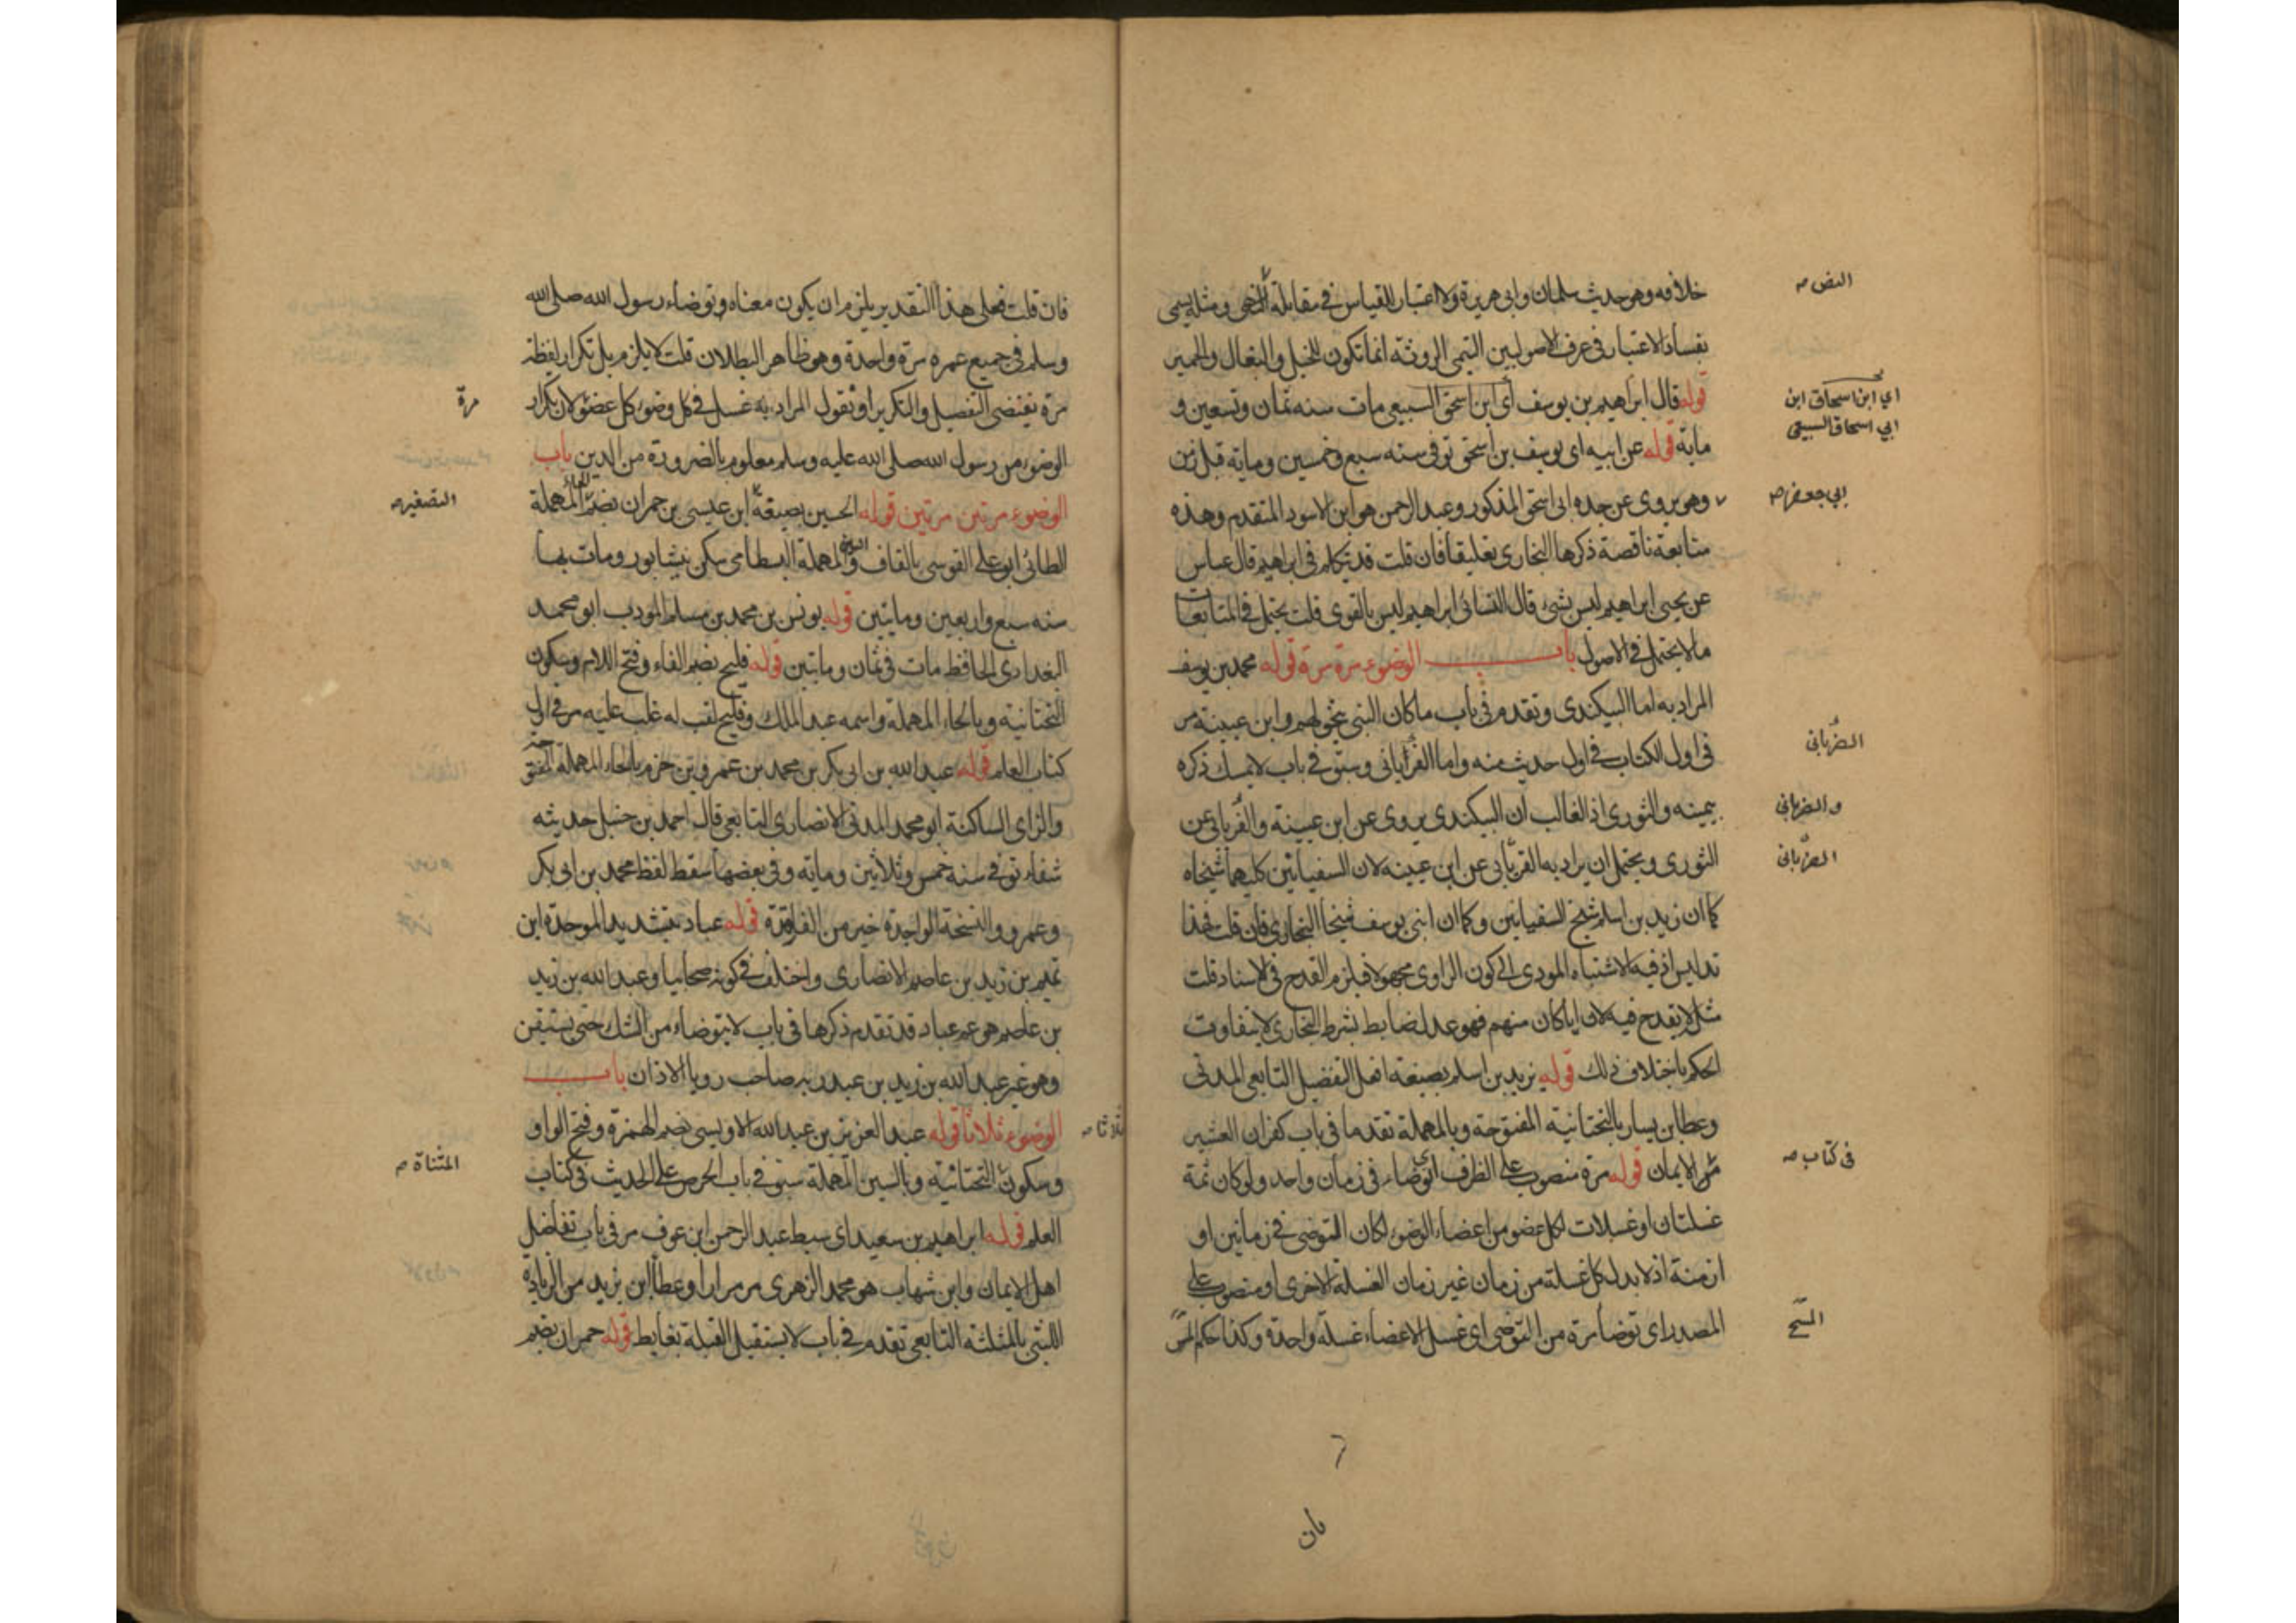 خلافه وهو حديث سلمان وابي هريرة ولا اعتبار للقياس في مقابلة النهي ومثله يسمى
النص صح
بفساد الاعتبار في عرف الاصوليين التيمي الروثة انما تكون للخيل والبغال والحمير
قوله قال ابراهيم بن يوسف أي ابن اسحق السبيعي مات سنه ثمان وتسعين و
اي ابن اسحاق ابن
ابي اسحاق السبيعي
ماية قوله عن ابيه اي يوسف بن اسحق توفي سنه سبع وخمسين وماية قبل زمن
ابي جعفر صح
وهو يروي عن جده ابي اسحق المذكور وعبد الرحمن هو ابن الاسود المتقدم وهذه
متابعة ناقصة ذكرها البخاري تعليقا فان قلت قد تكلم في ابراهيم قال عباس
عن يحيى ابراهيم ليس بشيء قال النسائي ابراهيم ليس بالقوي قلت يحتمل في المتابعات
ما لا يحتمل في الاصول باب الوضوء مرة مرة قوله محمد بن يوسف
المراد به اما البيكندي وتقدم في باب ما كان النبي يتخولهم وابن عيينة مر
في اول الكتاب في اول حديث منه واما الفريابي وسبق في باب لا يمسك ذكره
الفريابي
بيمينه والثوري اذ الغالب ان البيكندي يروي عن ابن عيينة والفريابي عن
والفريابي
الثوري ويحتمل ان يراد به الفريابي عن ابن عيينه لان السفيانين كليهما شيخاه
الفريابي
كما ان زيد بن اسلم شيخ السفيانين وكما ان ابني يوسف شيخا البخاري فان قلت فهذا
تدليس اذ فيه الاشتباه المودي الى كون الراوي مجهولا فيلزم القدح في الاسناد قلت
مثل لا يقدح فيه لان ايا كان منهم فهو عدل ضابط بشرط البخاري لا يتفاوت
الحكم باختلاف ذلك قوله زيد بن اسلم بصيغة افعل التفضيل التابعي المدني
وعطا بن يسار بالتحتانية المفتوحة وبالمهملة تقدما في باب كفران العشير
من الايمان قوله مرة منصوب على الظرف اي توضاء في زمان واحد ولو كان ثمة
في كتاب صح
غسلتان او غسلات لكل عضو من اعضاء الوضوء لكان التوضي في زمانين او
ازمنة اذ لا بد لكل غسلة من زمان غير زمان الغسلة الاخرى او منصوب على
المصدر اي توضأ مرة من التوضي اي غسل الاعضاء غسلة واحدة وكذا حكم المسح
المسح
فان
فان قلت فعلى هذا التقدير يلزم ان يكون معناه وتوضاء رسول الله صلى الله
وسلم في جميع عمره مرة واحدة وهو ظاهر البطلان قلت لا يلزم بل تكرار لفظة
مرة يقتضي التفصيل والتكرير او نقول المراد به غسل في كل وضوء كل عضو لان تكرار
مرة
الوضوء من رسول الله صلى الله عليه وسلم معلوم بالضرورة من الدين باب
الوضوء مرتين مرتين قوله الحسين بصيغة ابن عيسى بن حمران بضم الحاء المهملة
التصغير صح
الطائي ابو علي القومسي بالقاف والسين المهملة البسطامي سكن نيشابور ومات بها
سنه سبع واربعين وماتين قوله يونس بن محمد بن مسلم المودب ابو محمد
البغدادي الحافظ مات في ثمان وماتين قوله فليح بضم الفاء وفتح اللام وسكون
التحتانية وبالحاء المهملة واسمه عبد الملك وفليح لقب له غلب عليه مر في اول
كتاب العلم قوله عبد الله بن ابي بكر بن محمد بن عمرو بن حزم بالحاء المهملة المفتوحة
والزاي الساكنة ابو محمد المدني الانصاري التابعي قال احمد بن حنبل حديثه
شفاء توفي سنه خمس وثلاثين وماية وفي بعضها سقط لفظ محمد بن ابي بكر
وعمرو والنسخة الواجدة خير من الفاقدة قوله عباد بتشديد الموحدة ابن
تميم بن زيد بن عاصم الانصاري واختلف في كونه صحابيا وعبد الله بن زيد
بن عاصم هو عم عباد قد تقدم ذكرها في باب لا يتوضاء من الشك حتى يستيقن
وهو غير عبد الله بن زيد بن عبد ربه صاحب رويا الاذان باب
الوضوء ثلاثا قوله عبد العزيز بن عبد الله الاويسي بضم الهمزة وفتح الواو
ثلاثا صح
وسكون التحتانية وبالسين المهملة سبق في باب الحرص على الحديث في كتاب
المثناة صح
العلم قوله ابراهيم بن سعيد اي سبط عبد الرحمن ابن عوف مر في باب تفاضل
اهل الايمان وابن شهاب هو محمد الزهري مر مرارا وعطا ابن يزيد من الزيادة
الليثي بالمثلثة التابعي تقدم في باب لا يستقبل القبلة بغايط قوله حمران بضم